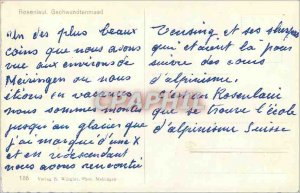 Rosenlaui. Gschwandtenmaad
"Un des plus beaux
coins que nous avons
vue aux environs de
Meiringen ou nous
étions en vacances
nous sommes montés
jusqu'au glacier que
j'ai marqué d'une X
et en redescendant
nous avons rencontré
Tensing et ses sherpas
qui étaient là pour
suivre des cours
d'alpinisme.
C'est en Rosenlaui
que se trouve l'école
d'alpinisme Suisse
Verlag
Meiringen